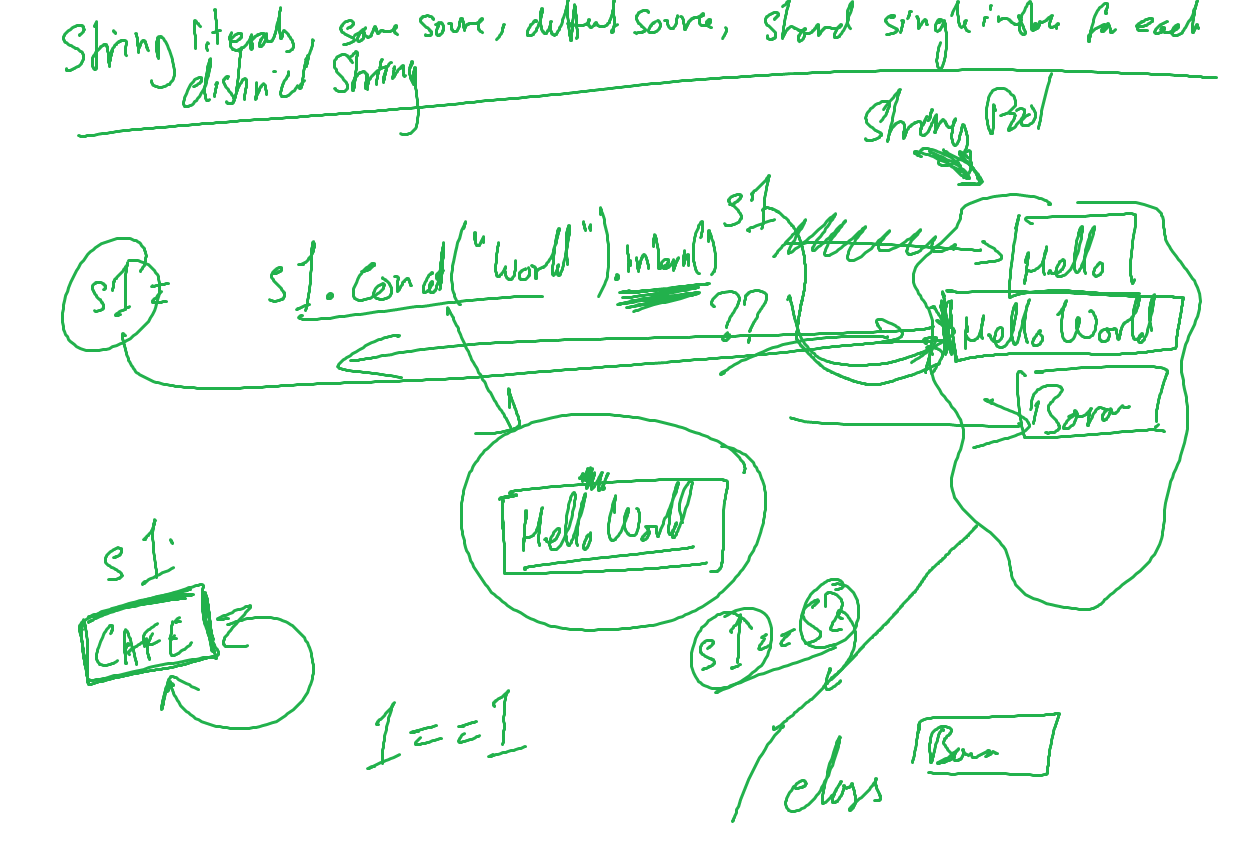 String literals, same source, different source, shared single instance for each
distinct String
String Pool
s1
s1 = s1.Concat("World").intern()
Hello
??
Hello World
Boran
Hello World
s1.
CAFE
s1 == s2
1 == 1
class